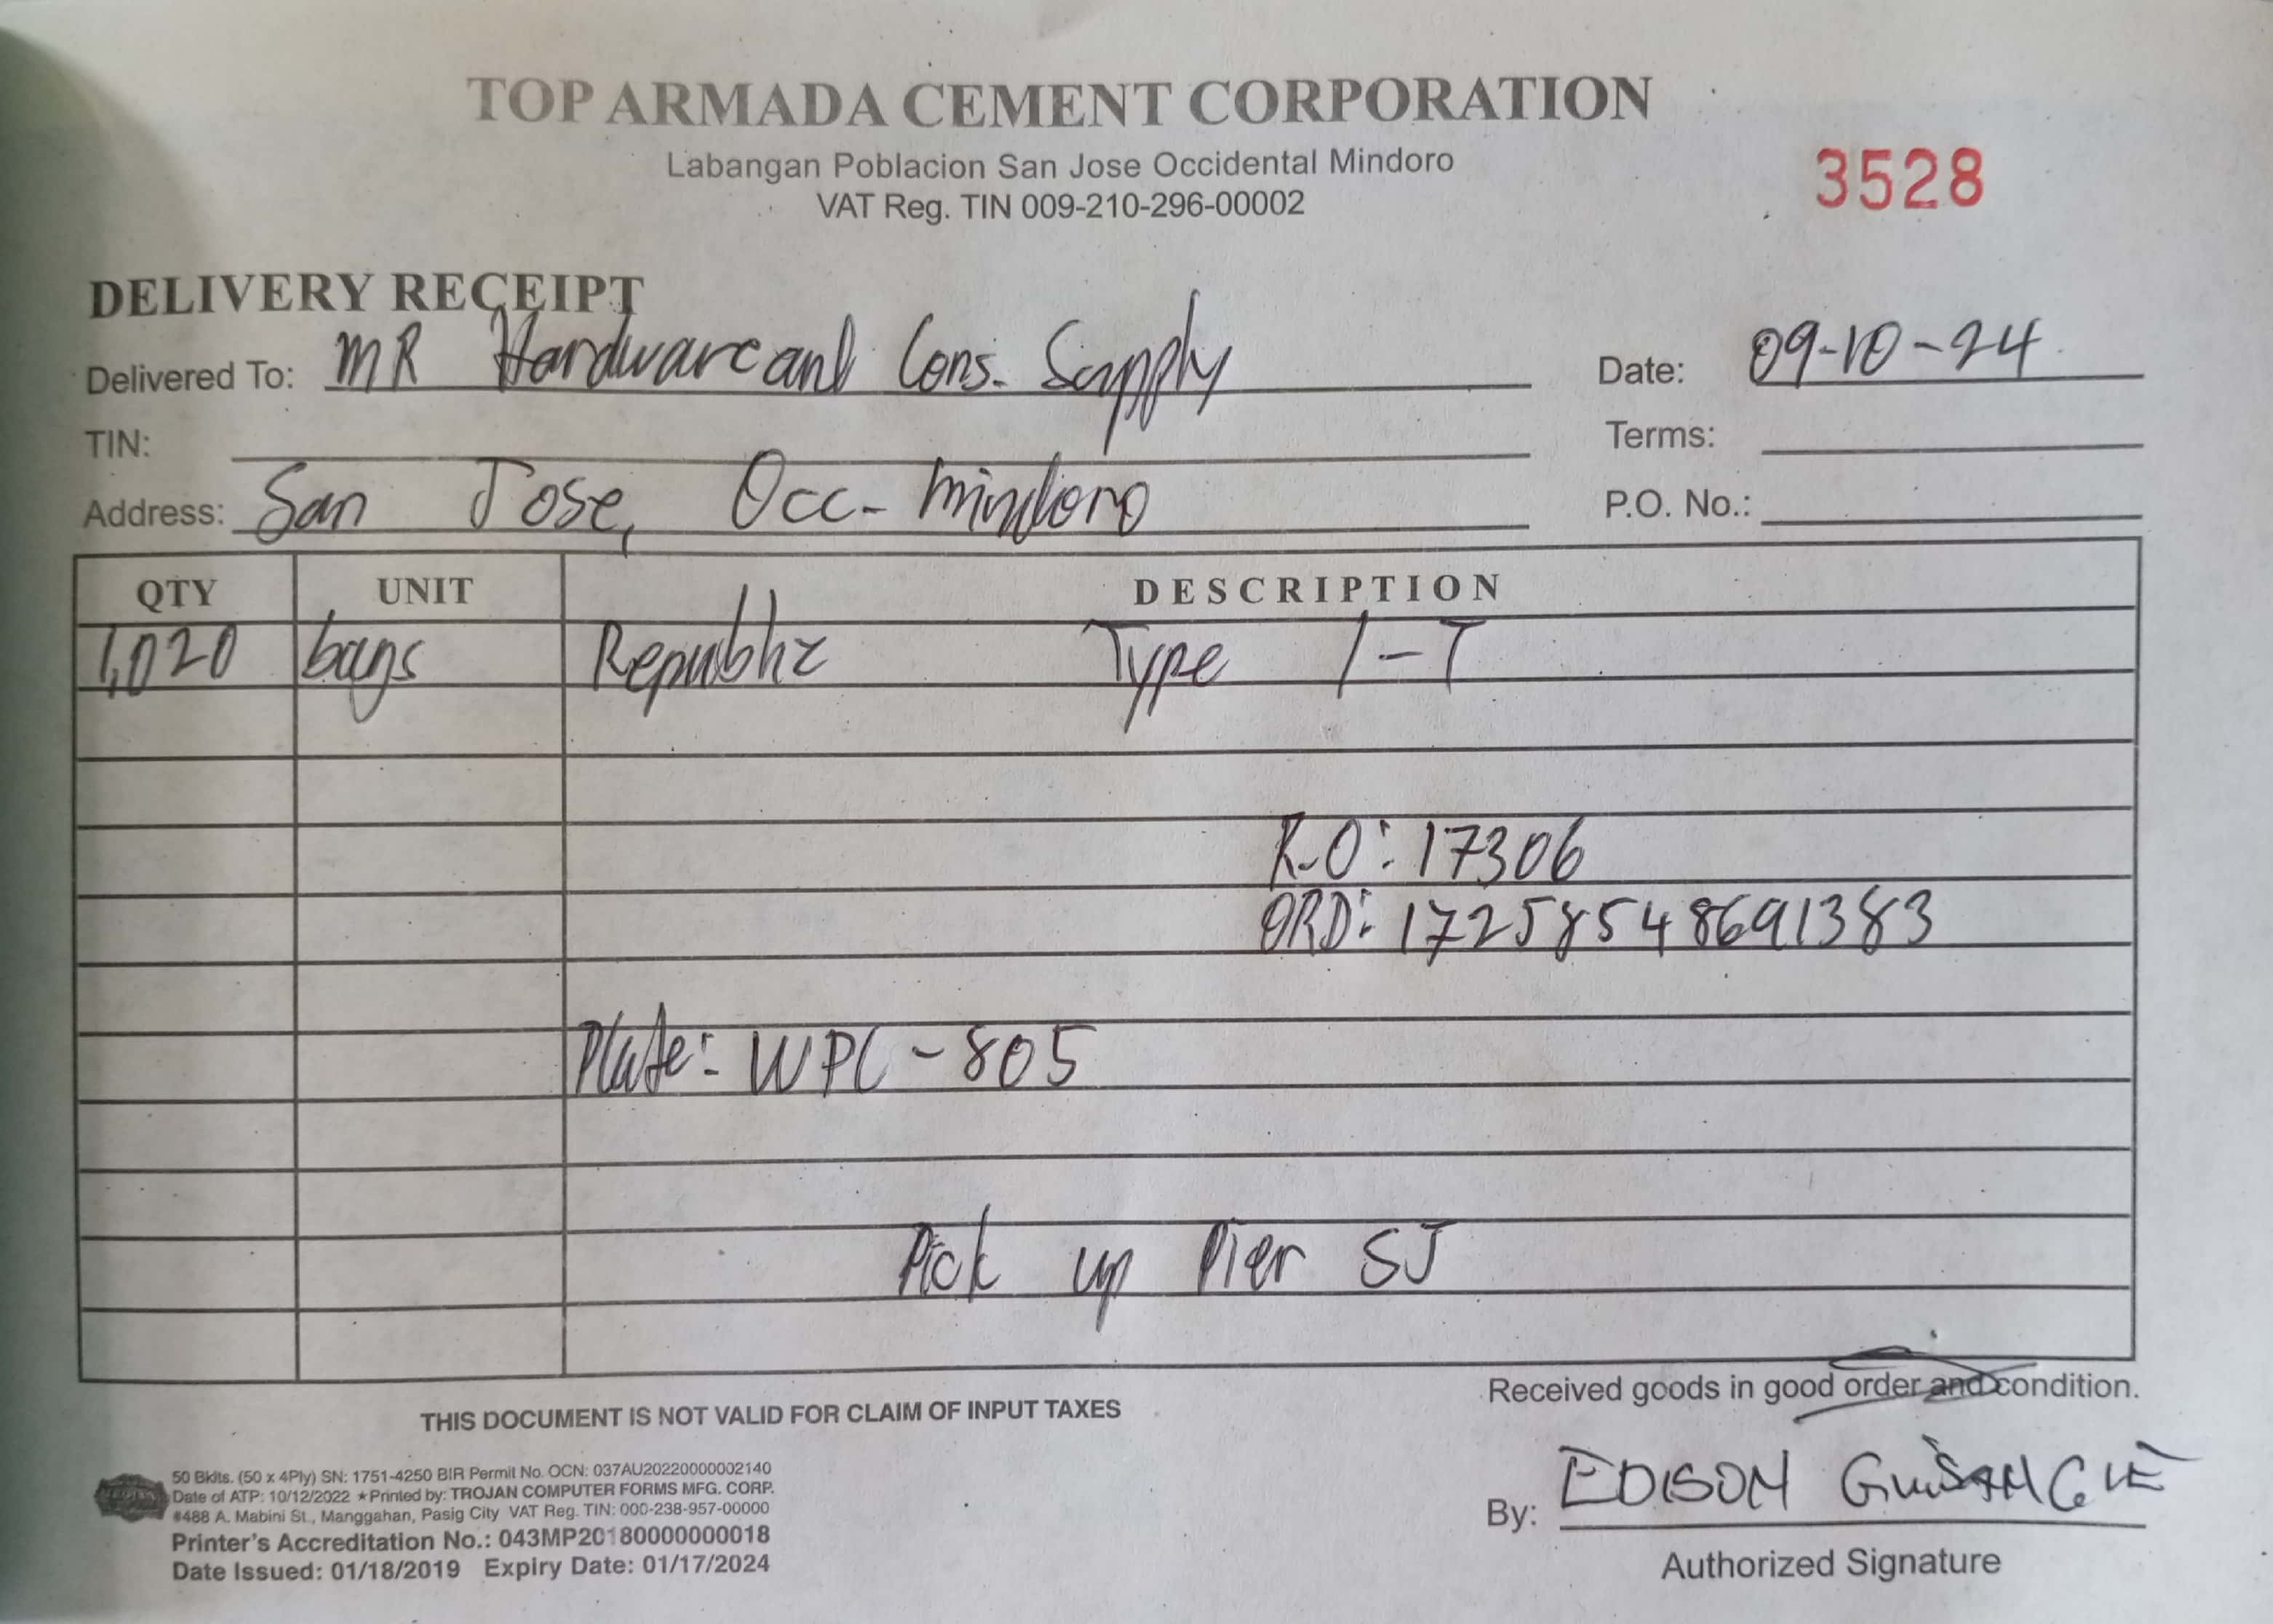 TOP ARMADA CEMENT CORPORATION
Labangan Poblacion San Jose Occidental Mindoro
VAT Reg. TIN 009-210-296-00002
3528
DELIVERY RECEIPT
Delivered To: MR Hardware and Cons. Supply
Date: 09-10-24
TIN:
Terms:
Address: San Jose, Occ. Mindoro
P.O. No.:
QTY UNIT DESCRIPTION
1,020 bags Republic Type 1-T
R.O: 17306
ORD: 172585548691383
Plate: WPC-805
Pick up Pier SJ
Received goods in good order and condition.
THIS DOCUMENT IS NOT VALID FOR CLAIM OF INPUT TAXES
50 Bklts. (50 x 4Ply) SN: 1751-4250 BIR Permit No. OCN: 037AU20220000002140
Date of ATP: 10/12/2022 ★Printed by: TROJAN COMPUTER FORMS MFG. CORP.
#488 A. Mabini St., Manggahan, Pasig City VAT Reg. TIN: 000-238-957-00000
Printer's Accreditation No.: 043MP20180000000018
Date Issued: 01/18/2019 Expiry Date: 01/17/2024
By: EDISON
Authorized Signature